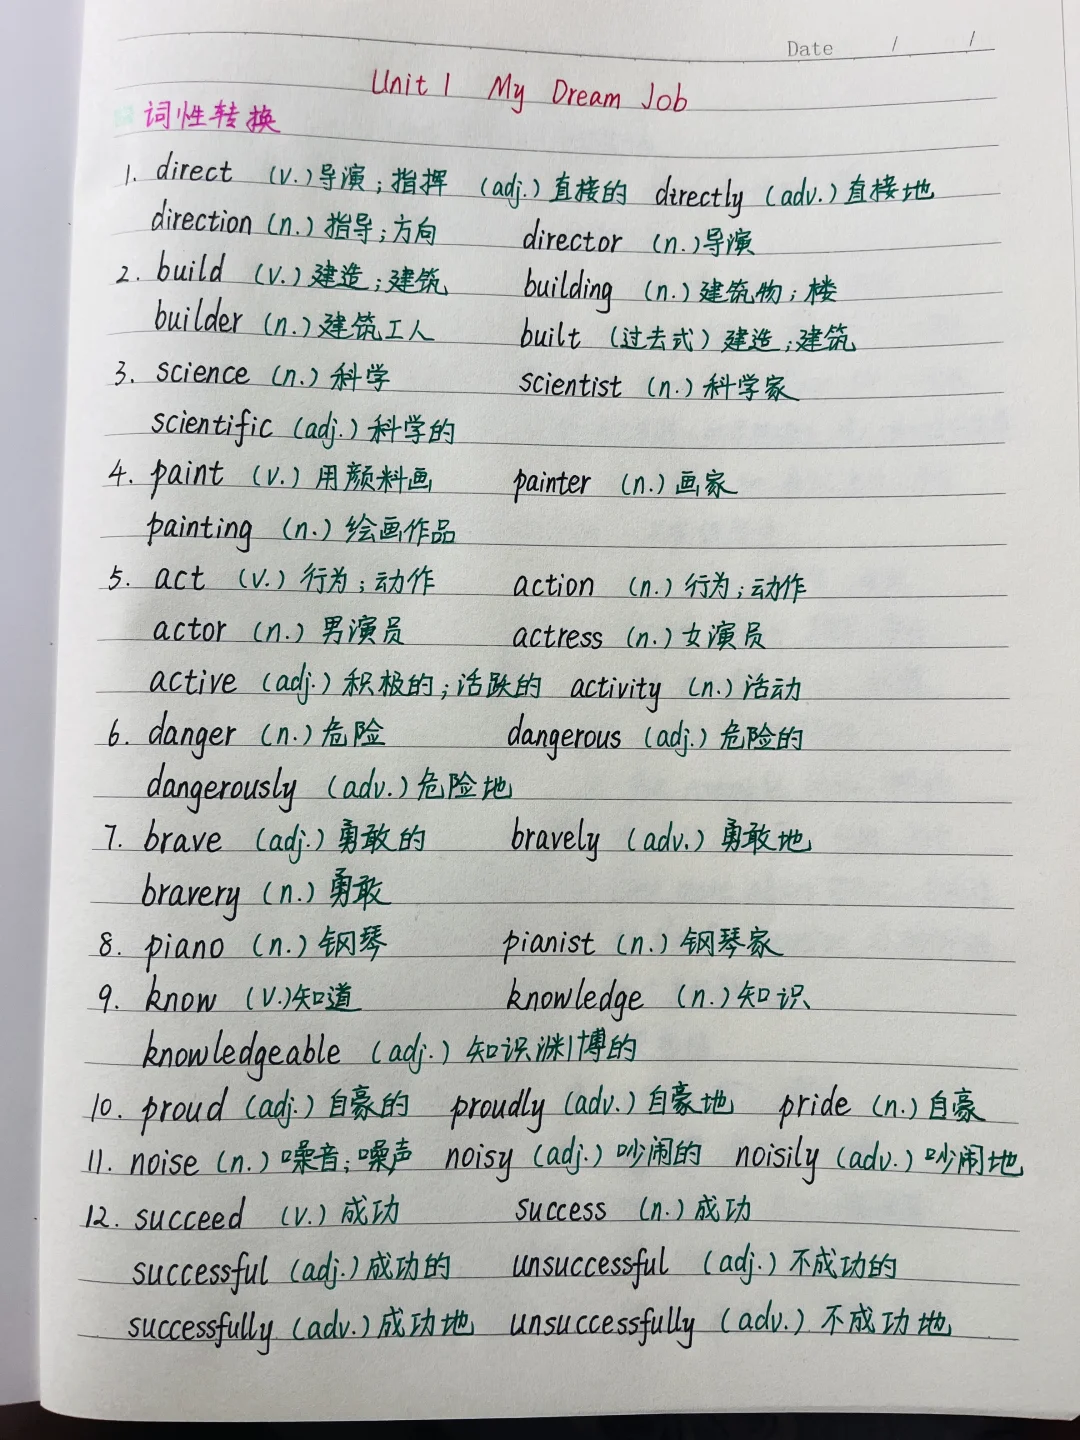 Date / /
Unit 1 My Dream Job
词性转换
1. direct (v.) 导演；指挥 (adj.) 直接的 directly (adv.) 直接地
direction (n.) 指导；方向 director (n.) 导演
2. build (v.) 建造；建筑 building (n.) 建筑物；楼
builder (n.) 建筑工人 built (过去式) 建造；建筑
3. science (n.) 科学 scientist (n.) 科学家
scientific (adj.) 科学的
4. paint (v.) 用颜料画 painter (n.) 画家
painting (n.) 绘画作品
5. act (v.) 行为；动作 action (n.) 行为；动作
actor (n.) 男演员 actress (n.) 女演员
active (adj.) 积极的；活跃的 activity (n.) 活动
6. danger (n.) 危险 dangerous (adj.) 危险的
dangerously (adv.) 危险地
7. brave (adj.) 勇敢的 bravely (adv.) 勇敢地
bravery (n.) 勇敢
8. piano (n.) 钢琴 pianist (n.) 钢琴家
9. know (v.) 知道 knowledge (n.) 知识
knowledgeable (adj.) 知识渊博的
10. proud (adj.) 自豪的 proudly (adv.) 自豪地 pride (n.) 自豪
11. noise (n.) 噪音；噪声 noisy (adj.) 吵闹的 noisily (adv.) 吵闹地
12. succeed (v.) 成功 success (n.) 成功
successful (adj.) 成功的 unsuccessful (adj.) 不成功的
successfully (adv.) 成功地 unsuccessfully (adv.) 不成功地